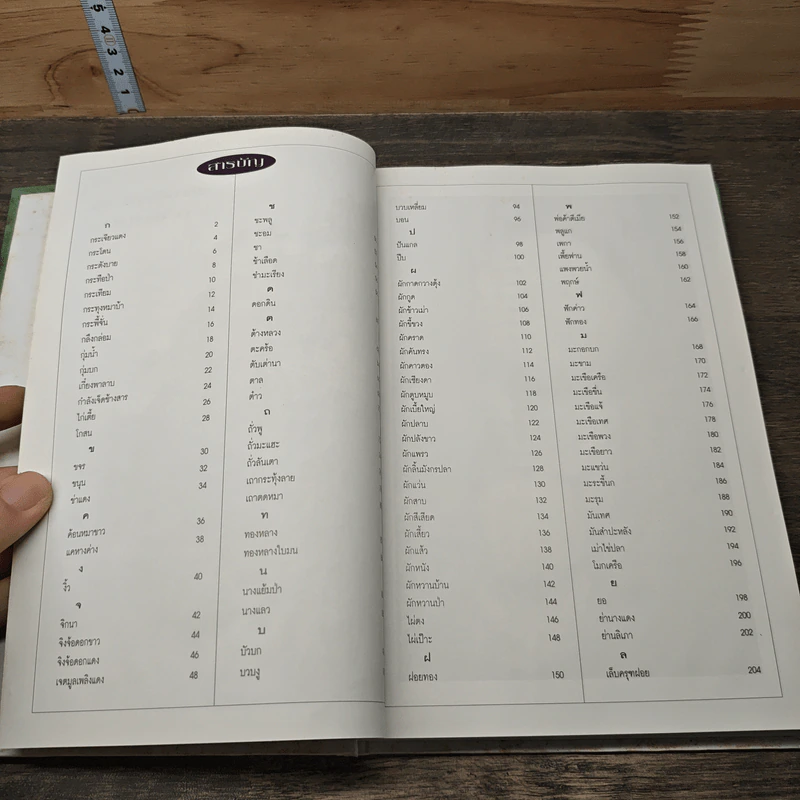 5
4
3
2
1
สารบัญ
ก
กระเจียวแดง 2
กระโดน 4
กระดังบาย 6
กระทือป่า 8
กระเทียม 10
กระทุงหมาบ้า 12
กระพี้จั่น 14
กลึงกล่อม 16
กุ่มน้ำ 18
กุ่มบก 20
เกี๋ยงพาลาบ 22
กำลังเจ็ดช้างสาร 24
ไก่เตี้ย 26
โกสน 28
ข
ขจร 30
ขนุน 32
ข่าแดง 34
ค
ค้อนหมาขาว 36
แคหางค่าง 38
ง
งิ้ว 40
จ
จิกนา 42
จิงจ้อดอกขาว 44
จิงจ้อดอกแดง 46
เจตมูลเพลิงแดง 48
ช
ชะพลู
ชะอม
ชา
ช้าเลือด
ชำมะเรียง
ด
ดอกดิน
ต
ต้างหลวง
ตะคร้อ
ตับเต่านา
ตาล
ต๋าว
ถ
ถั่วพู
ถั่วมะแฮะ
ถั่วลันเตา
เถากระทุ้งลาย
เถาตดหมา
ท
ทองหลาง
ทองหลางใบมน
น
นางแย้มป่า
นางแลว
บ
บัวบก
บวบงู
บวบเหลี่ยม 94
บอน 96
ป
ปันแกล 98
ปีบ 100
ผ
ผักกาดกวางตุ้ง 102
ผักกูด 104
ผักข้าวเม่า 106
ผักขี้ขวง 108
ผักคราด 110
ผักคันทรง 112
ผักคาวตอง 114
ผักเชียงดา 116
ผักตูบหมูบ 118
ผักเบี้ยใหญ่ 120
ผักปลาบ 122
ผักปลังขาว 124
ผักแพรว 126
ผักลิ้นมังกรปลา 128
ผักแว่น 130
ผักสาบ 132
ผักสีเสียด 134
ผักเสี้ยว 136
ผักแส้ว 138
ผักหนัง 140
ผักหวานบ้าน 142
ผักหวานป่า 144
ไผ่ตง 146
ไผ่เป๊าะ 148
ฝ
ฝอยทอง 150
พ
พ่อค้าตีเมีย 152
พลูแก 154
เพกา 156
เพี้ยฟาน 158
แพงพวยน้ำ 160
พฤกษ์ 162
ฟ
ฟักค่าว 164
ฟักทอง 166
ม
มะกอกบก 168
มะขาม 170
มะเขือเครือ 172
มะเขือขื่น 174
มะเขือแจ้ 176
มะเขือเทศ 178
มะเขือพวง 180
มะเขือยาว 182
มะแขว่น 184
มะระขี้นก 186
มะรุม 188
มันเทศ 190
มันสำปะหลัง 192
เม่าไข่ปลา 194
โมกเครือ 196
ย
ยอ 198
ย่านางแดง 200
ย่านลิเภา 202
ล
เล็บครุฑฝอย 204